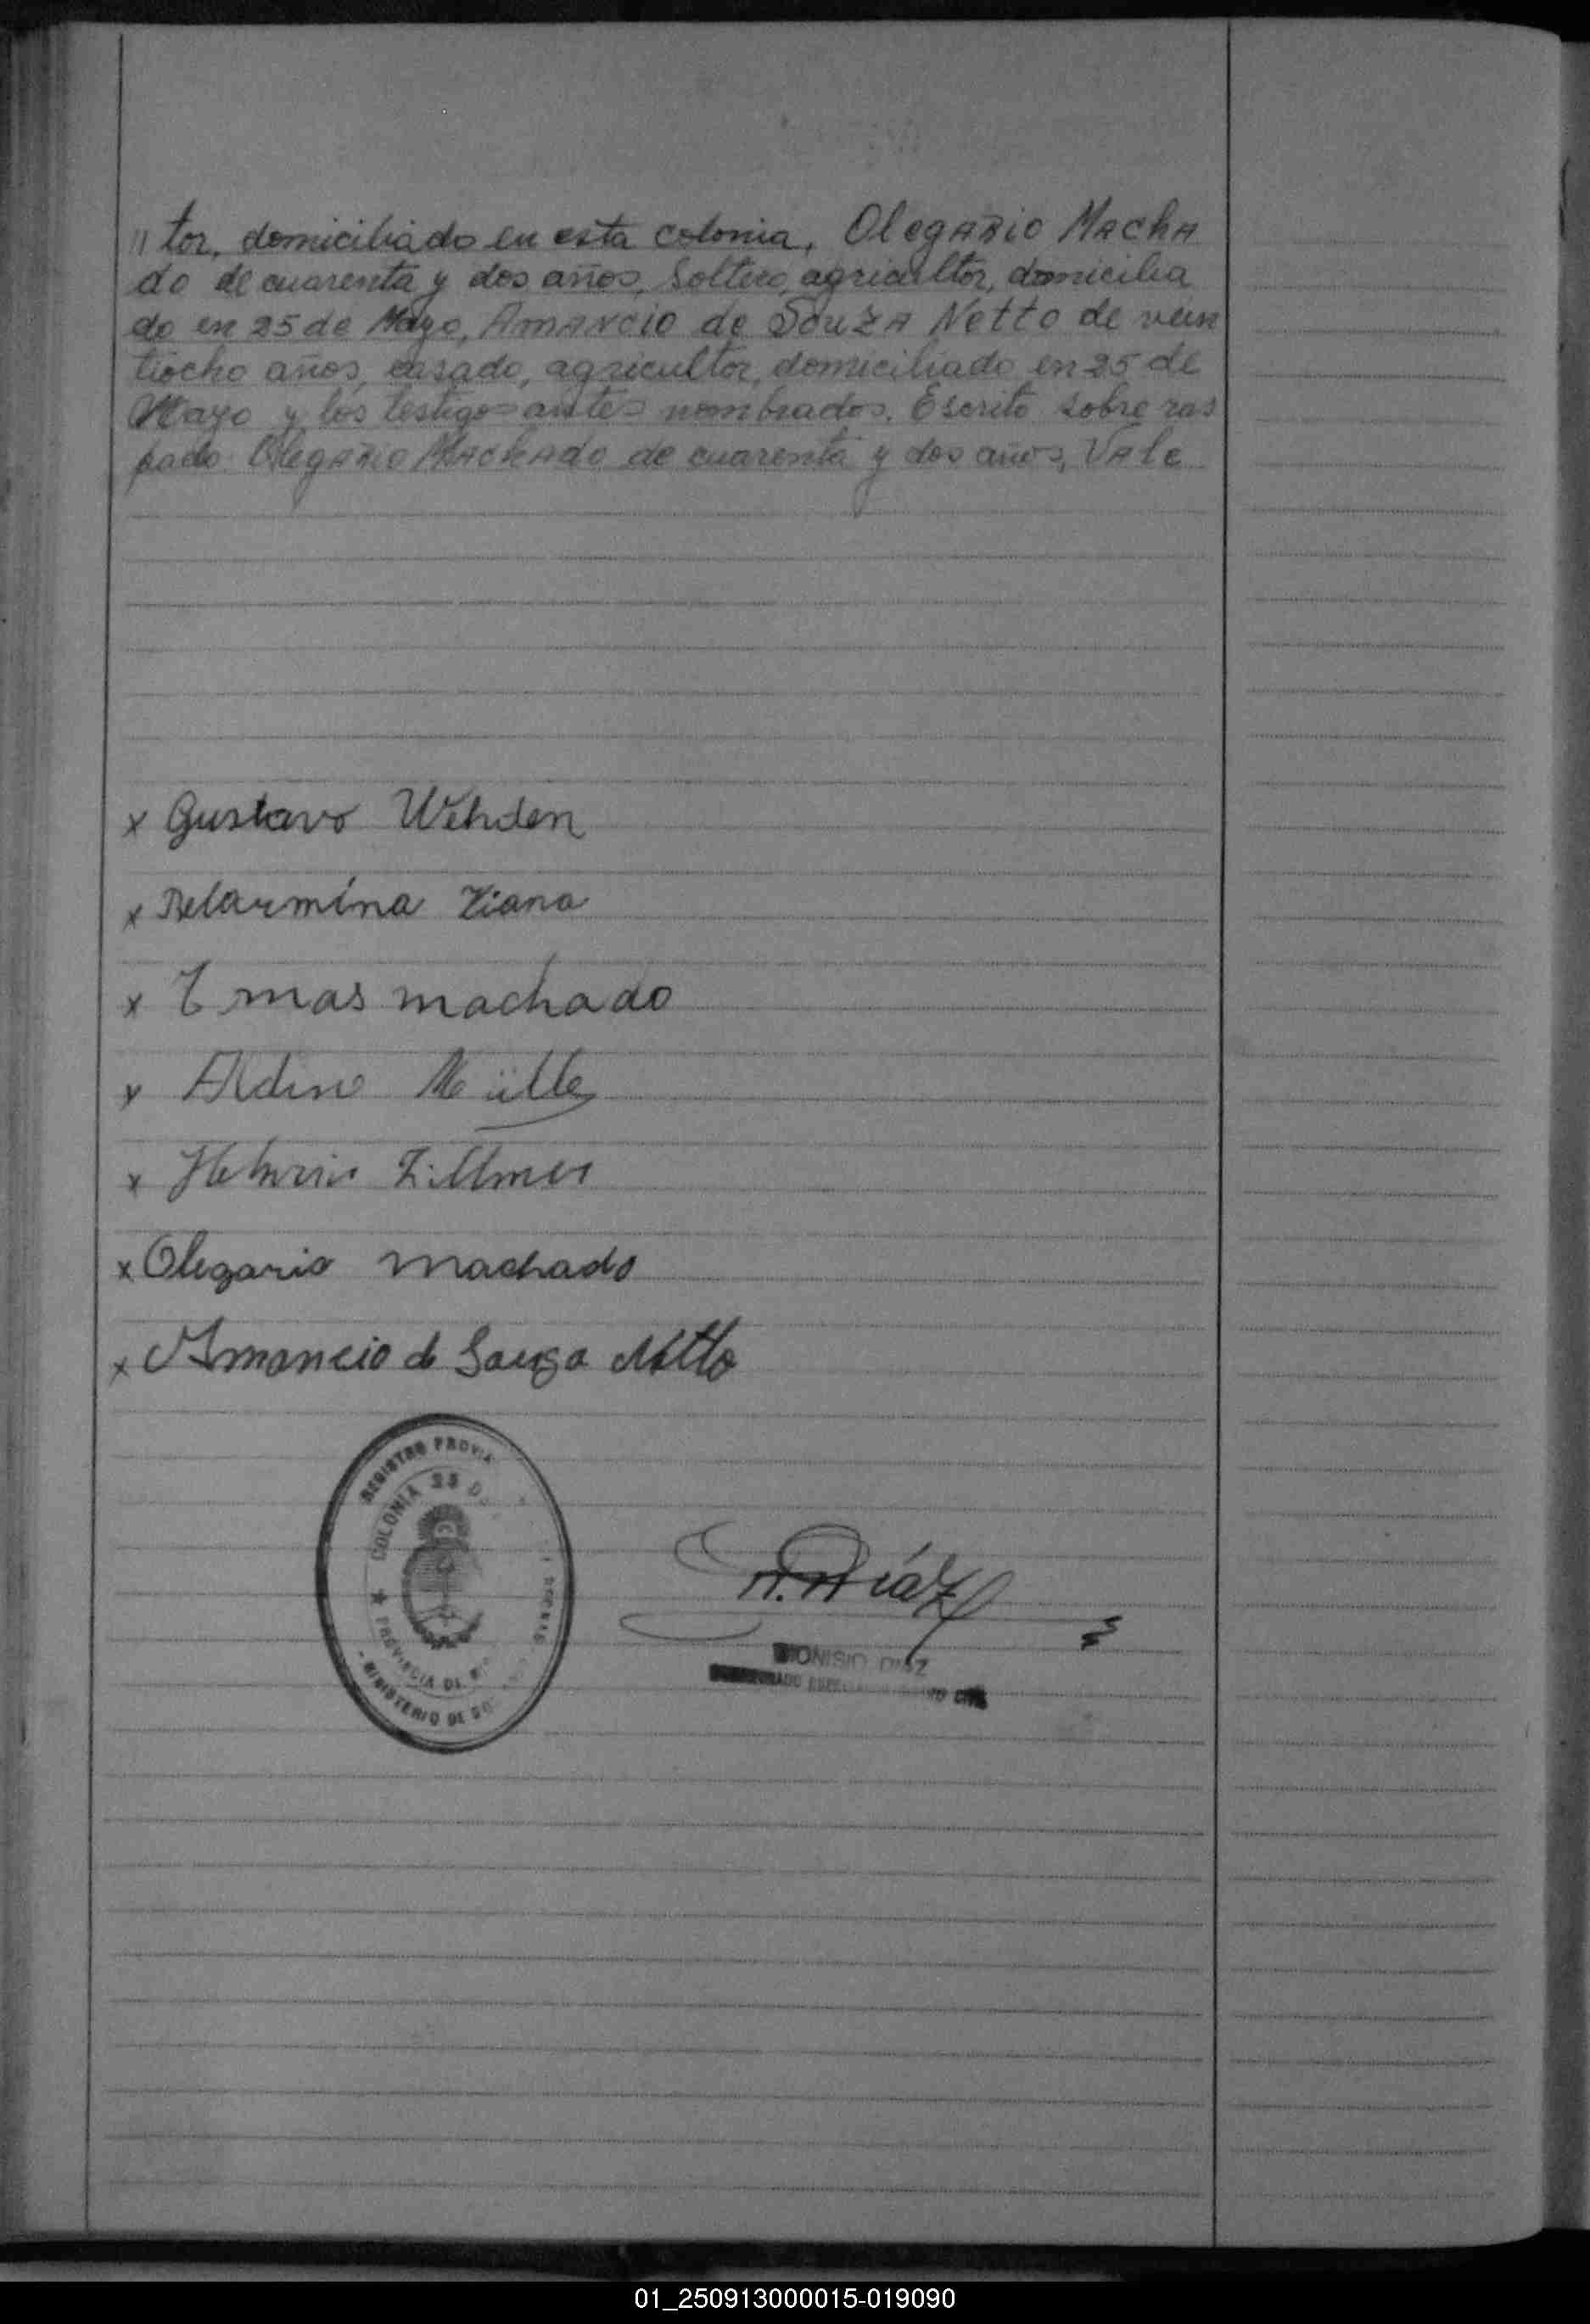 " tor, domiciliado en esta colonia, Olegario Macha
do de cuarenta y dos años, Soltero, agricultor, domicilia
do en 25 de Mayo, Amancio de Souza Netto de vein
tiocho años, casado, agricultor, domiciliado en 25 de
Mayo y los testigos antes nombrados. Escrito sobre ras
pado: Olegario Machado de cuarenta y dos años, Vale
x Gustavo Wehden
x Belarmina Viana
x machado
x Müller
x Zillmer
x Olegario machado
x Amancio de Souza Netto
REGISTRO PROVIN
COLONIA 25 D
PROVINCIA DE
MINISTERIO DE GO
D. Díaz
DIONISIO DIAZ
01_250913000015-019090